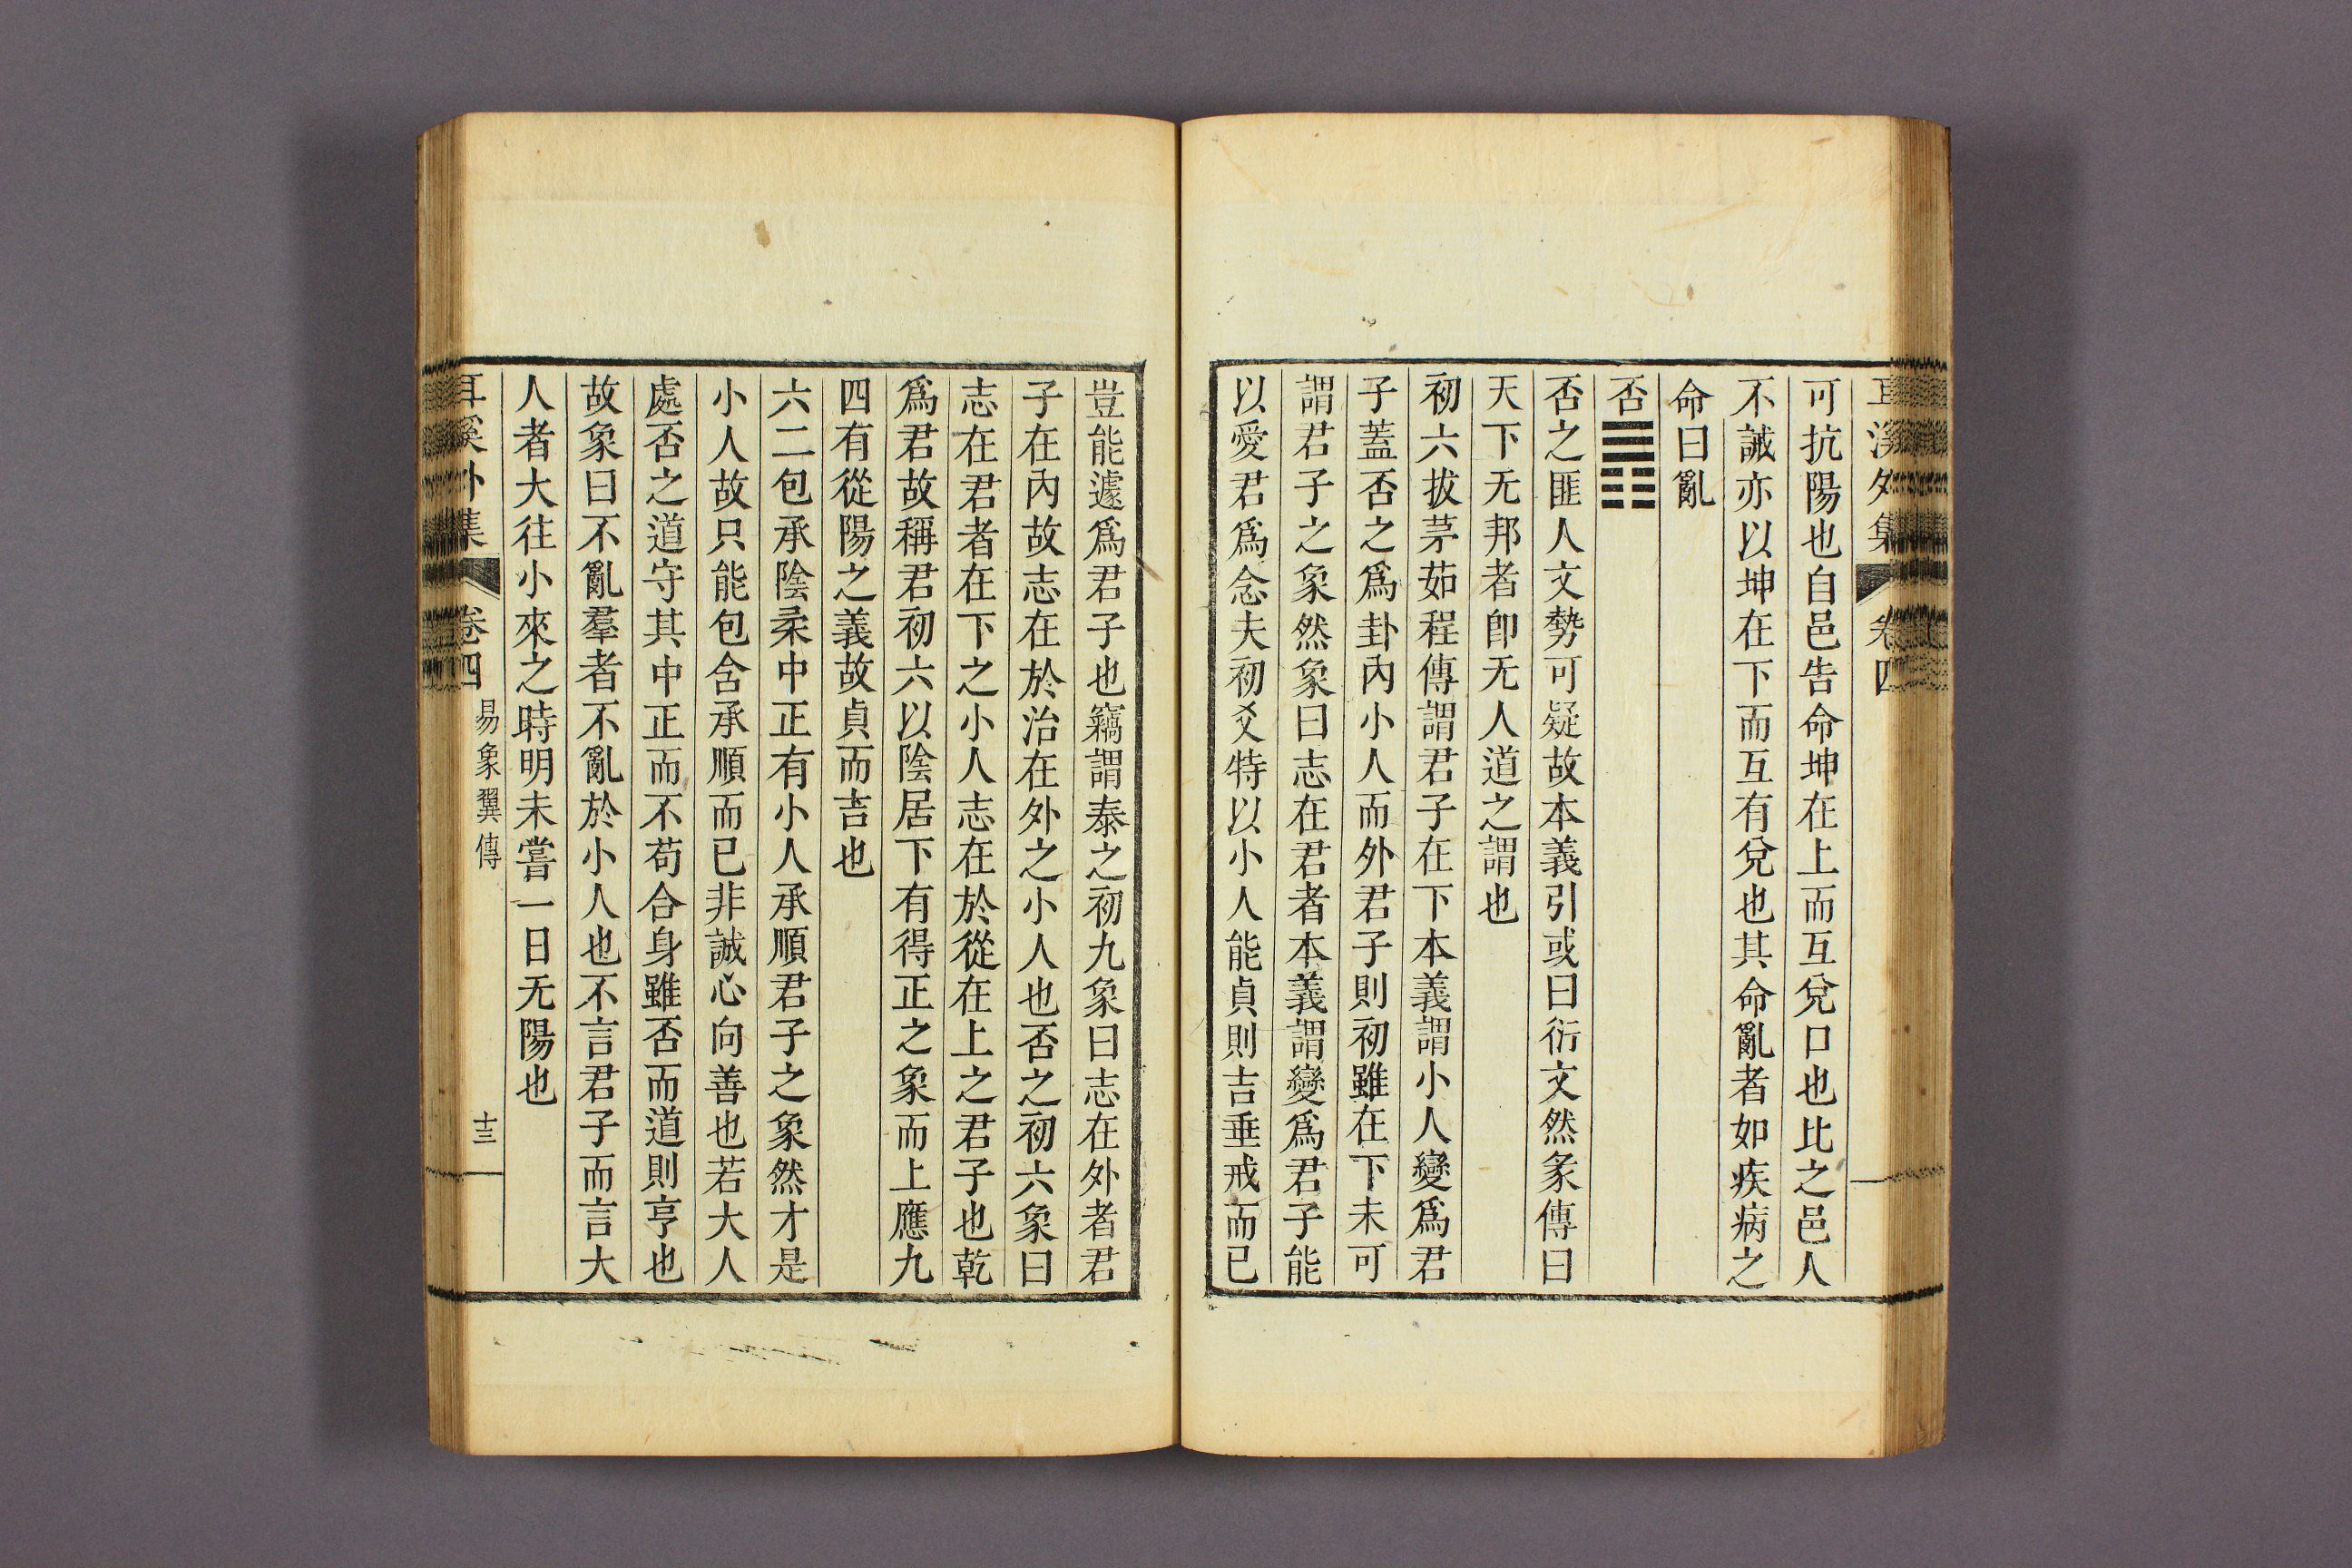 耳溪外集 卷四
可抗陽也自邑告命坤在上而互兌口也比之邑人
不誠亦以坤在下而互有兌也其命亂者如疾病之
命曰亂
否䷋
否之匪人文勢可疑故本義引或曰衍文然彖傳曰
天下无邦者卽无人道之謂也
初六拔茅茹程傳謂君子在下本義謂小人變爲君
子蓋否之爲卦內小人而外君子則初雖在下未可
謂君子之象然象曰志在君者本義謂變爲君子能
以愛君爲念夫初爻特以小人能貞則吉垂戒而已
豈能遽爲君子也竊謂泰之初九象曰志在外者君
子在內故志在於治在外之小人也否之初六象曰
志在君者在下之小人志在於從在上之君子也乾
爲君故稱君初六以陰居下有得正之象而上應九
四有從陽之義故貞而吉也
六二包承陰柔中正有小人承順君子之象然才是
小人故只能包含承順而已非誠心向善也若大人
處否之道守其中正而不苟合身雖否而道則亨也
故象曰不亂羣者不亂於小人也不言君子而言大
人者大往小來之時明未嘗一日无陽也
耳溪外集 卷四 易象翼傳 十三